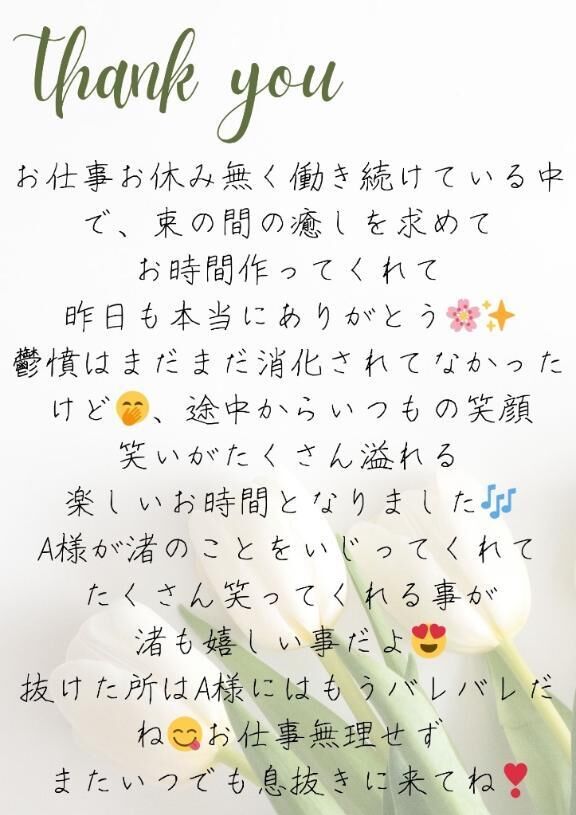 thank you
お仕事お休み無く働き続けている中
で、束の間の癒しを求めて
お時間作ってくれて
昨日も本当にありがとう🌸✨
鬱憤はまだまだ消化されてなかった
けど🤭、途中からいつもの笑顔
笑いがたくさん溢れる
楽しいお時間となりました🎶
A様が渚のことをいじってくれて
たくさん笑ってくれる事が
渚も嬉しい事だよ😍
抜けた所はA様にはもうバレバレだ
ね😋お仕事無理せず
またいつでも息抜きに来てね❣️